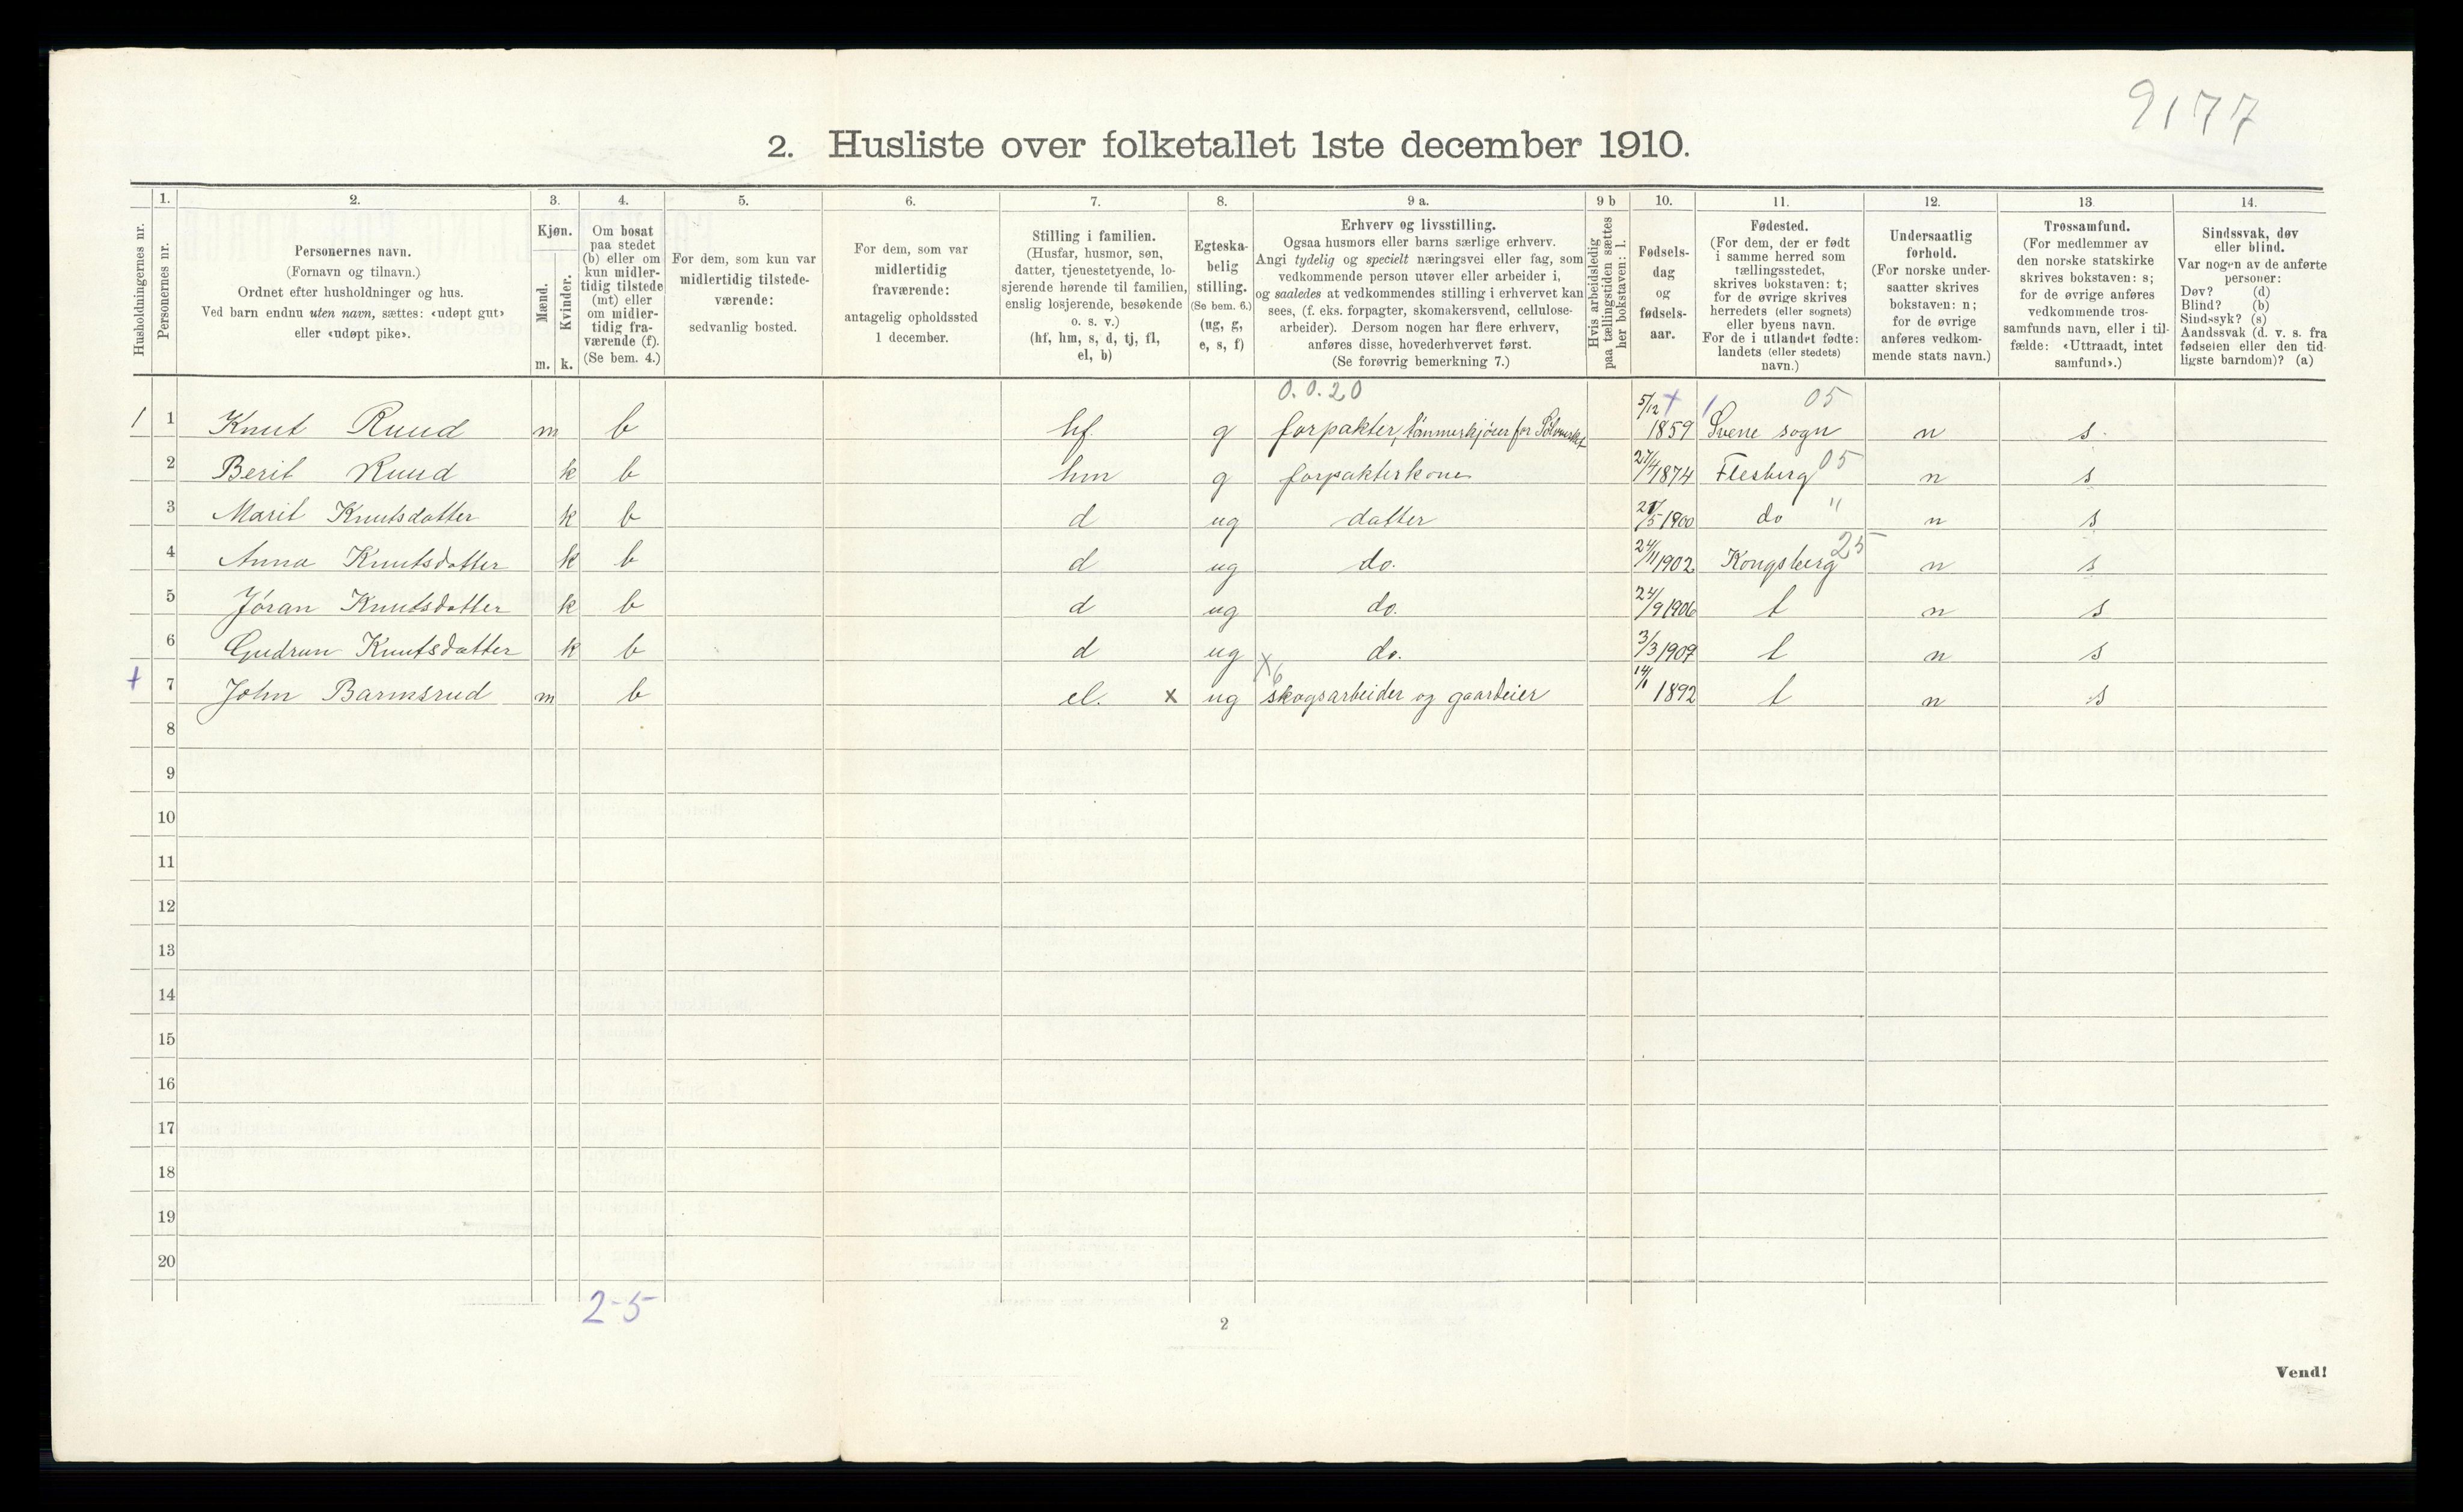 9177
2. Husliste over folketallet 1ste december 1910.
Husholdningernes nr.
1.
Personernes nr.
2.
Personernes navn.
(Fornavn og tilnavn.)
Ordnet efter husholdninger og hus.
Ved barn endnu uten navn, sættes: «udøpt gut»
eller «udøpt pike».
3.
Kjøn.
Mænd.
Kvinder.
m. k.
4.
Om bosat
paa stedet
(b) eller om
kun midler-
tidig tilstede
(mt) eller
om midler-
tidig fra-
værende (f).
(Se bem. 4.)
5.
For dem, som kun var
midlertidig tilstede-
værende:
sedvanlig bosted.
6.
For dem, som var
midlertidig
fraværende:
antagelig opholdssted
1 december.
7.
Stilling i familien.
(Husfar, husmor, søn,
datter, tjenestetyende, lo-
sjerende hørende til familien,
enslig losjerende, besøkende
o. s. v.)
(hf, hm, s, d, tj, fl,
el, b)
8.
Egteska-
belig
stilling.
(Se bem. 6.)
(ug, g,
e, s, f)
9 a.
Erhverv og livsstilling.
Ogsaa husmors eller barns særlige erhverv.
Angi tydelig og specielt næringsvei eller fag, som
vedkommende person utøver eller arbeider i,
og saaledes at vedkommendes stilling i erhvervet kan
sees, (f. eks. forpagter, skomakersvend, cellulose-
arbeider). Dersom nogen har flere erhverv,
anføres disse, hovederhvervet først.
(Se forøvrig bemerkning 7.)
9 b
Hvis arbeidsledig
paa tællingstiden sættes
her bokstaven: l.
10.
Fødsels-
dag
og
fødsels-
aar.
11.
Fødested.
(For dem, der er født
i samme herred som
tællingsstedet,
skrives bokstaven: t;
for de øvrige skrives
herredets (eller sognets)
eller byens navn.
For de i utlandet fødte:
landets (eller stedets)
navn.)
12.
Undersaatlig
forhold.
(For norske under-
saatter skrives
bokstaven: n;
for de øvrige
anføres vedkom-
mende stats navn.)
13.
Trossamfund.
(For medlemmer av
den norske statskirke
skrives bokstaven: s;
for de øvrige anføres
vedkommende tros-
samfunds navn, eller i til-
fælde: «Uttraadt, intet
samfund».)
14.
Sindssvak, døv
eller blind.
Var nogen av de anførte
personer:
Døv? (d)
Blind? (b)
Sindssyk? (s)
Aandssvak (d. v. s. fra
fødselen eller den tid-
ligste barndom)? (a)
0.0.20 05
1 1 Knut Ruud m b hf. g forpakter, tømmerkjører for Sølvverket 5/12 1859 Svene sogn n s.
2 Berit Ruud k b hm g forpakterkone 27/4 1874 Flesberg 05 n s
3 Marit Knutsdatter k b d ug datter 1900 do " n s
4 Anna Knutsdatter k b d ug do. 24/11 1902 Kongsberg 25 n s
5 Jøran Knutsdatter k b d ug do. 24/9 1906 t n s
6 Gudrun Knutsdatter k b d ug do. 3/3 1909 t n s
+ 7 John Barmsrud m b el. x ug x 6 skogsarbeider og gaardeier 14/1 1892 t n s
8
9
10
11
12
13
14
15
16
17
18
19
20
2-5
2
Vend!